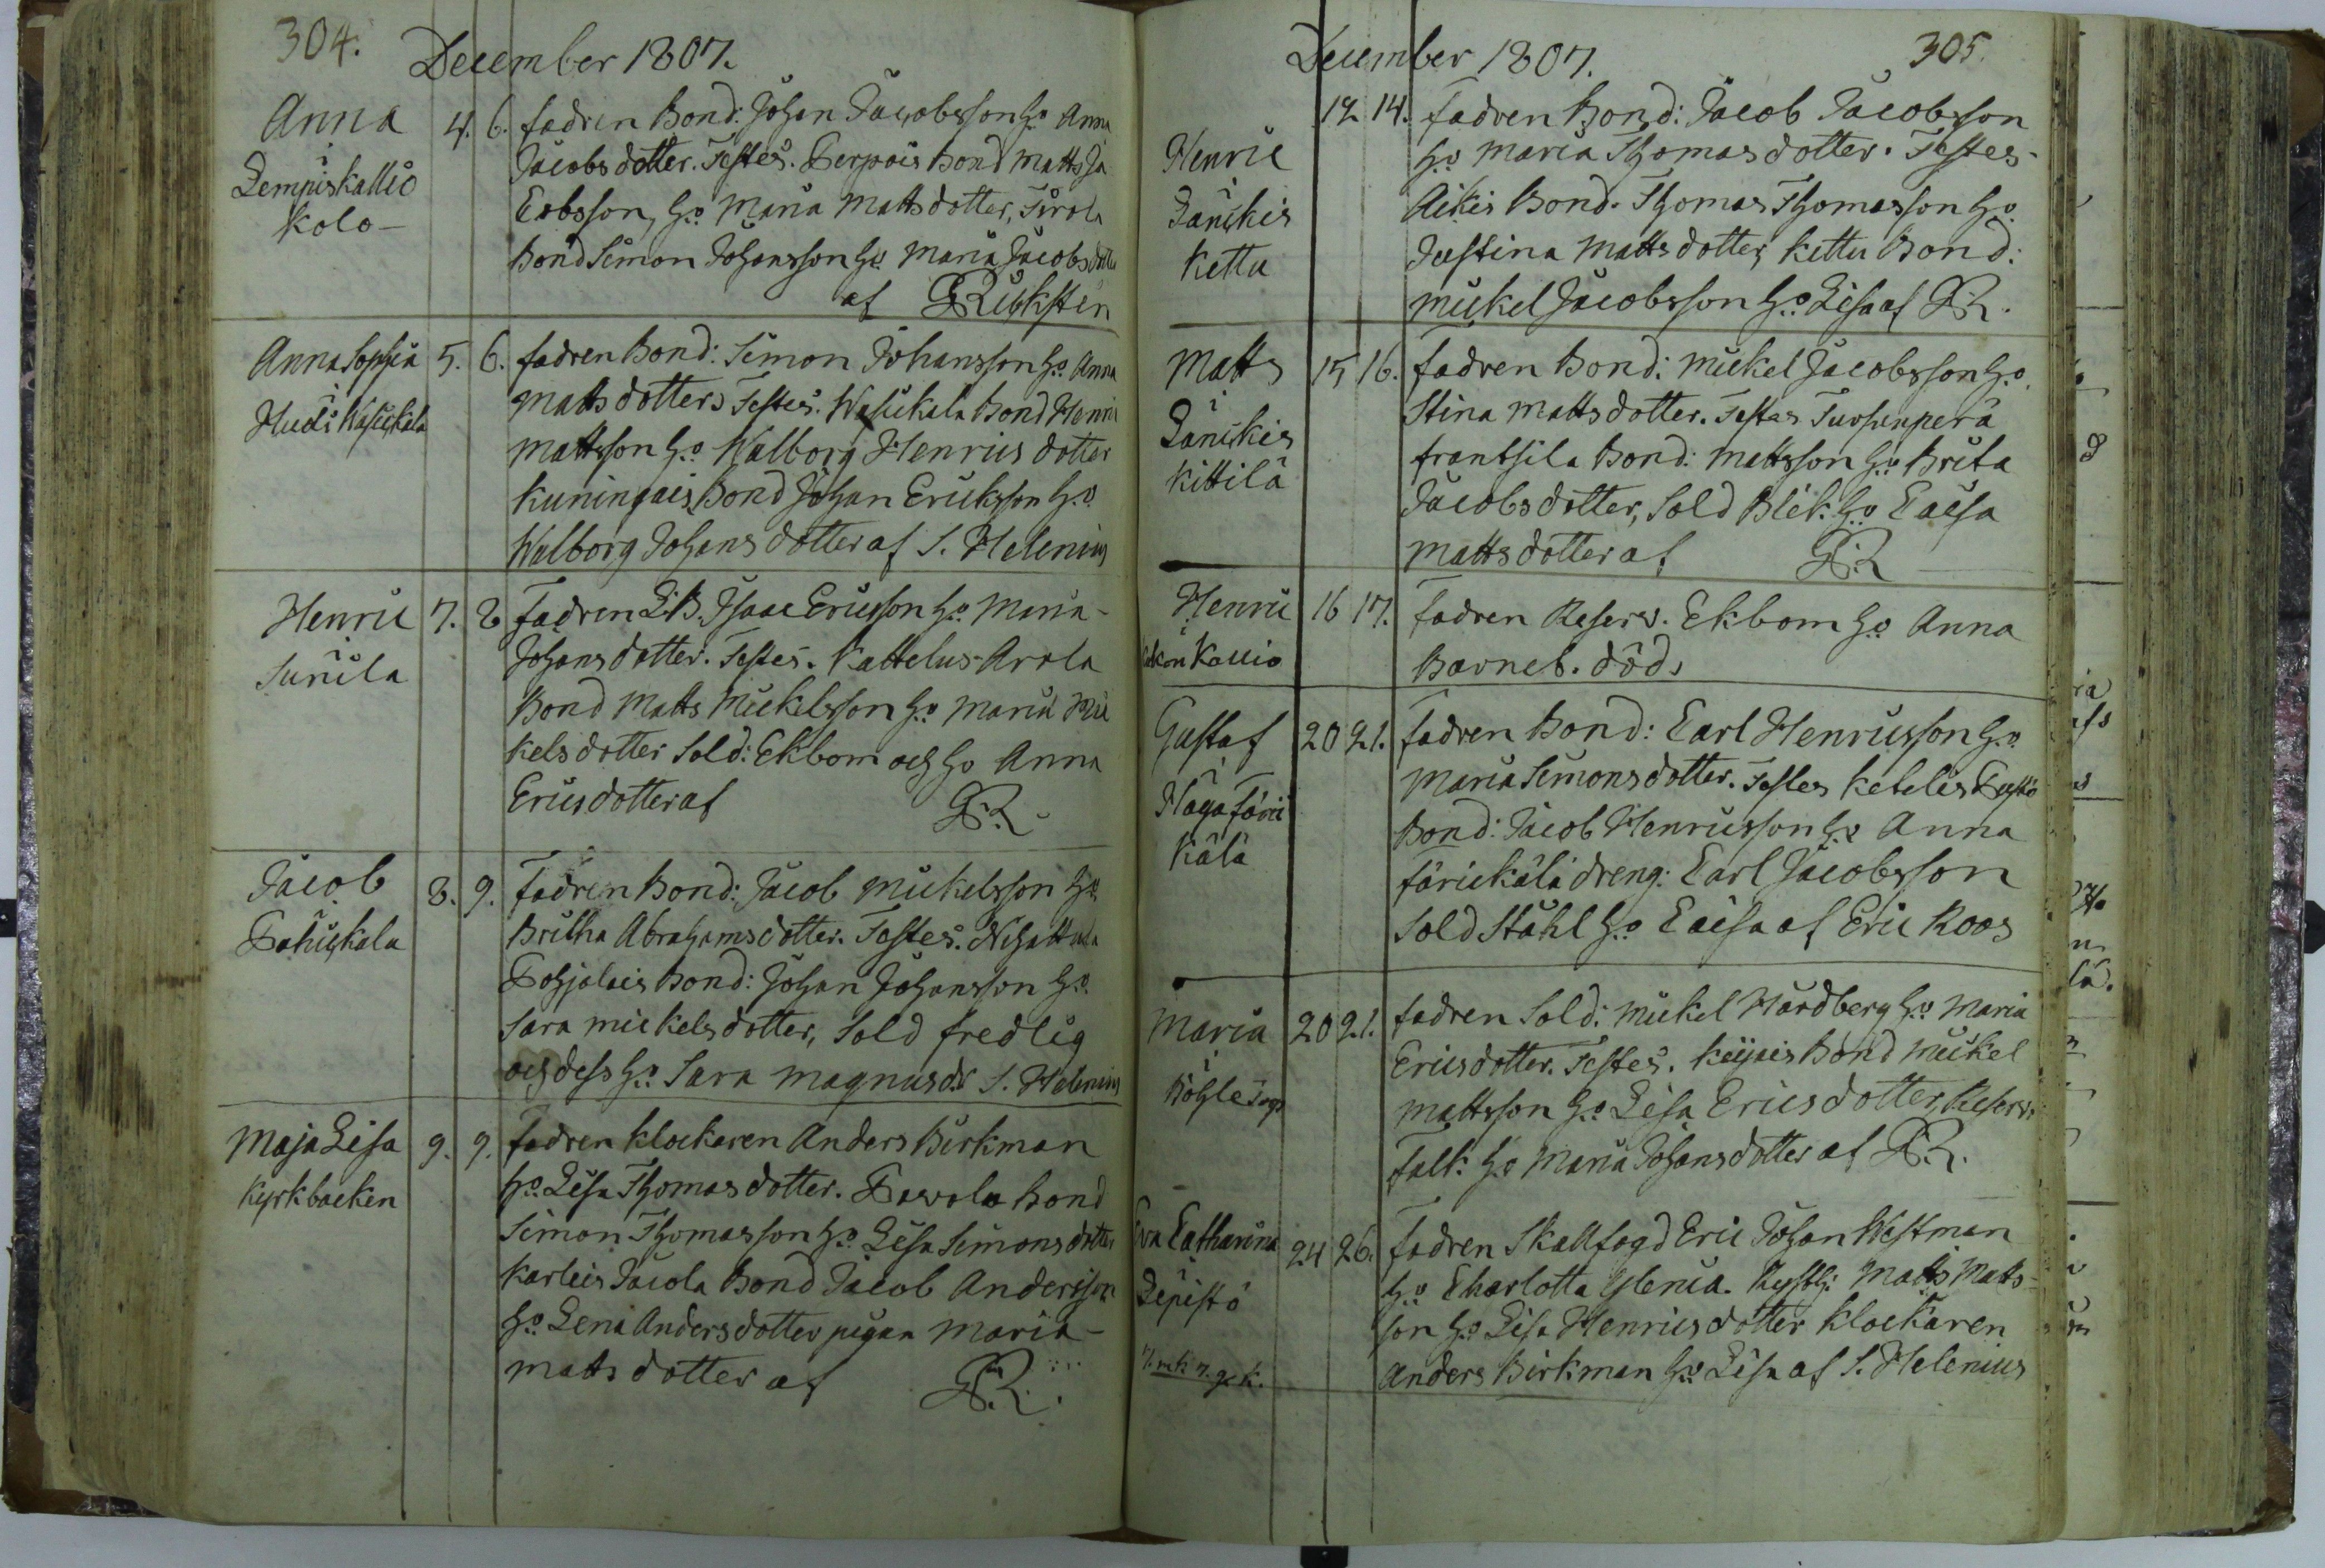 304.
December 1807.
Anna 4. 6. fadren Bond: Johan Jacobsson H:o Anna
Jacobs dotter. Testes. Perpois Bond Matts Ja
Lempiskallio
Cobsson, H:o Maria Matts dotter, Tirola
Kolo-
Bond Simon Johansson H:o Maria Jacobs dotter
af
Anna Sophia 5. 6. fadren Bond: Simon Johansson H:o Anna
Matts dotter Testes. Wasickala Bond Henric
Hudi Wasickala
Mattsson H:o Walborg Henrics dotter
Kuningais Bond Johan Ericksson H:o
Walborg Johans dotter af S. Helenius
Henric 7. 8 fadren L:B. Isaac Ericsson H:o Maria-
Johans dotter. Testes. Kattelus-Arola
Sunila
Bond Matts Mickelsson H:o Maria Mic
kels dotter Sold: Ekbom och H:o Anna
Erics dotter af G:R.
Jacob 8. 9. fadren Bond: Jacob Mickelsson H:o
Britha Abrahams dotter. Testes. Nihattula
Pahickala
Pohjolais Bond: Johan Johansson H:o
Sara Mickels dotter, Sold fredlig
och dess H:o Sara Magnus dr S. Helenius
Maja Lisa 9. 9. fadren klockaren Anders Birkman
Kyrkbacken
H:o Lisa Thomas dotter. Pawola Bond
Simon Thomasson H:o Lisa Simons dotter
Karleis Jacola Bond Jacob Andersson
H:o Lena Anders dotter pigan Maria-
Matts dotter af G:R.
December 1807.
305.
12 14. fadren Bond: Jacob Jacobsson
Henric
H:o Maria Thomas dotter. Testes-
Länskis
Aikis Bond. Thomas Thomasson H:o
Kettu
Justina Matts dotter, Kettu Bond:
Mickel Jacobsson H:o Lisa af G:R.
Matts 15 16. fadren Bond: Mickel Jacobsson H:o
Stina Matts dotter. Testes Tursunperä
Länskis
frantsila Bond: Mattsson H:o Brita
Kittilä
Jacobs dotter, Sold Blek: H:o Caisa
Matts dotter af G:R
Henric 16 17. fadren Reserv. Ekbom H:o Anna
Kallio
Barnet. död,
Gustaf 20 21. fadren Bond: Carl Henricsson H:o
Maria Simons dotter. Testes Ketelis
Haga Järi
Bond: Jacob Henricsson H:o Anna
Kälä
Järickälä dreng: Carl Jacobsson
Sold Ståhl H:o Caisa af Eric Roos
Maria 20 21. fadren Sold: Mickel Hårdberg H:o Maria
Erics dotter. Testes. Keijais Bond Mickel
Böhle
Mattsson H:o Lisa Erics dotter, Reserv:
Falk: H:o Maria Johans dotter af G:R.
Eva Catharina 24 26. fadren Skallfogd Eric Johan Westman
H:o Charlotta Glenia. Matts Matts-
Lepistö
son H:o Lisa Henrics dotter klockaren
Anders Birkman H:o Lisa af S. Helenius